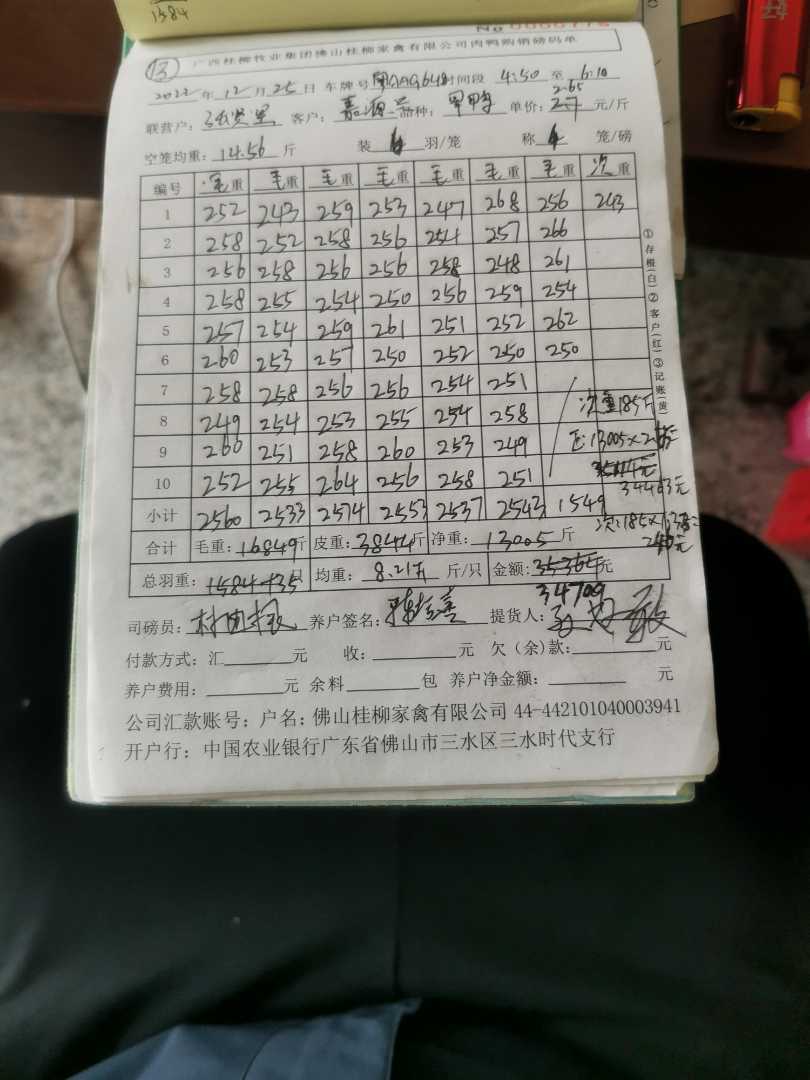 1384
No 0000776
(13) 广西桂柳牧业集团佛山桂柳家禽有限公司肉鸭购销磅码单
2022年12月25日 车牌号 时间段 4:50 至 6:10
联营户： 客户：嘉源 品种： 单价：2.65 元/斤
空笼均重：14.56 斤 装 羽/笼 称 笼/磅
编号 毛重 毛重 毛重 毛重 毛重 毛重 毛重 次重
1 252 243 259 253 247 268 256 243
2 258 252 258 256 254 257 266
3 256 258 256 256 258 248 261
4 258 255 254 250 256 259 254
5 257 254 259 261 251 252 262
6 260 253 257 250 252 250 250
7 258 258 256 256 254 251
8 249 254 253 255 254 258
9 260 251 258 260 253 249
10 252 255 264 256 258 251
小计 2560 2533 2574 2553 2537 2543 1549
次重185斤
正:13005×2.65
34463元
次:185×1.33=
246元
合计 毛重：16849斤 皮重：3844斤 净重：13005斤
总羽重：1584+35只 均重：8.21斤 斤/只 金额：35365元
34709
司磅员： 养户签名： 提货人：
付款方式：汇 元 收： 元 欠（余）款： 元
养户费用： 元 余料 包 养户净金额： 元
公司汇款账号：户名：佛山桂柳家禽有限公司 44-442101040003941
开户行：中国农业银行广东省佛山市三水区三水时代支行
①存根(白)②客户(红)③记账(黄)